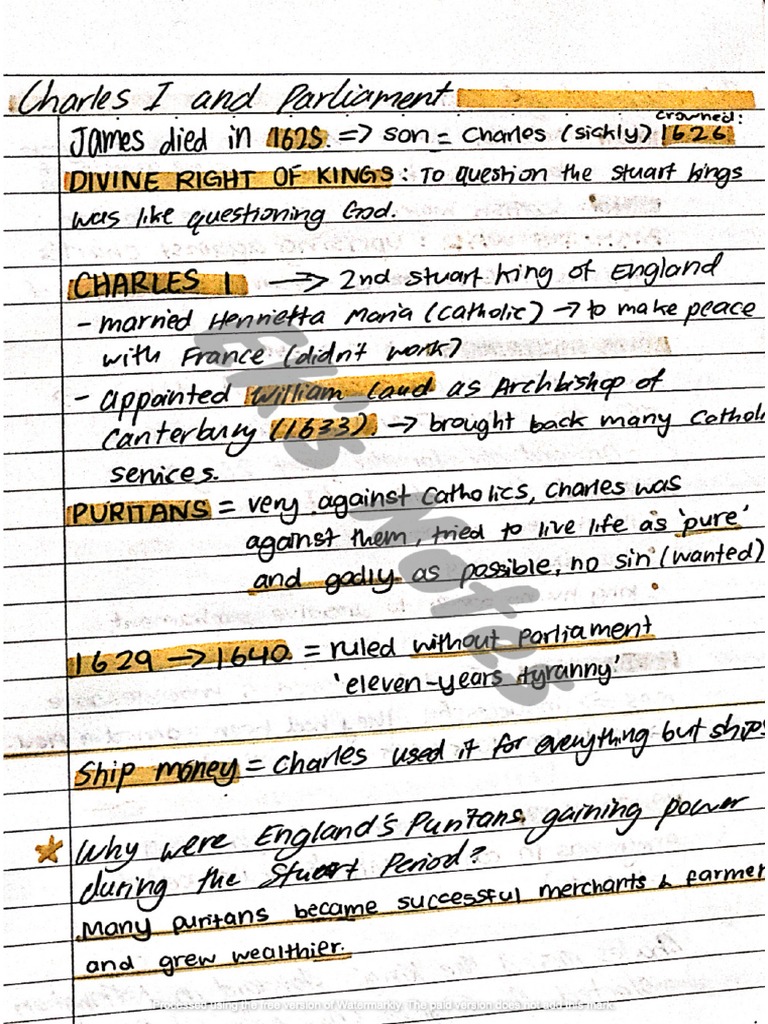 Charles I and Parliament
crowned:
James died in 1625. => son = Charles (sickly) 1626
DIVINE RIGHT OF KINGS: To question the stuart kings
was like questioning God.
CHARLES I → 2nd stuart king of England
- married Henrietta Maria (Catholic) → to make peace
with France (didn't work)
- appointed William Laud as Archbishop of
Canterbury (1633). → brought back many Cathol
services.
PURITANS = very against Catholics, Charles was
against them, tried to live life as 'pure'
and godly as possible, no sin (wanted)
1629 → 1640 = ruled without Parliament
'eleven-years tyranny'
Ship money = Charles used it for everything but ships
Why were England's Puritans gaining power
during the Stuart Period?
Many puritans became successful merchants & farmer
and grew wealthier.
Notes
Processed using the free version of Watermarkly. The paid version does not add this mark.